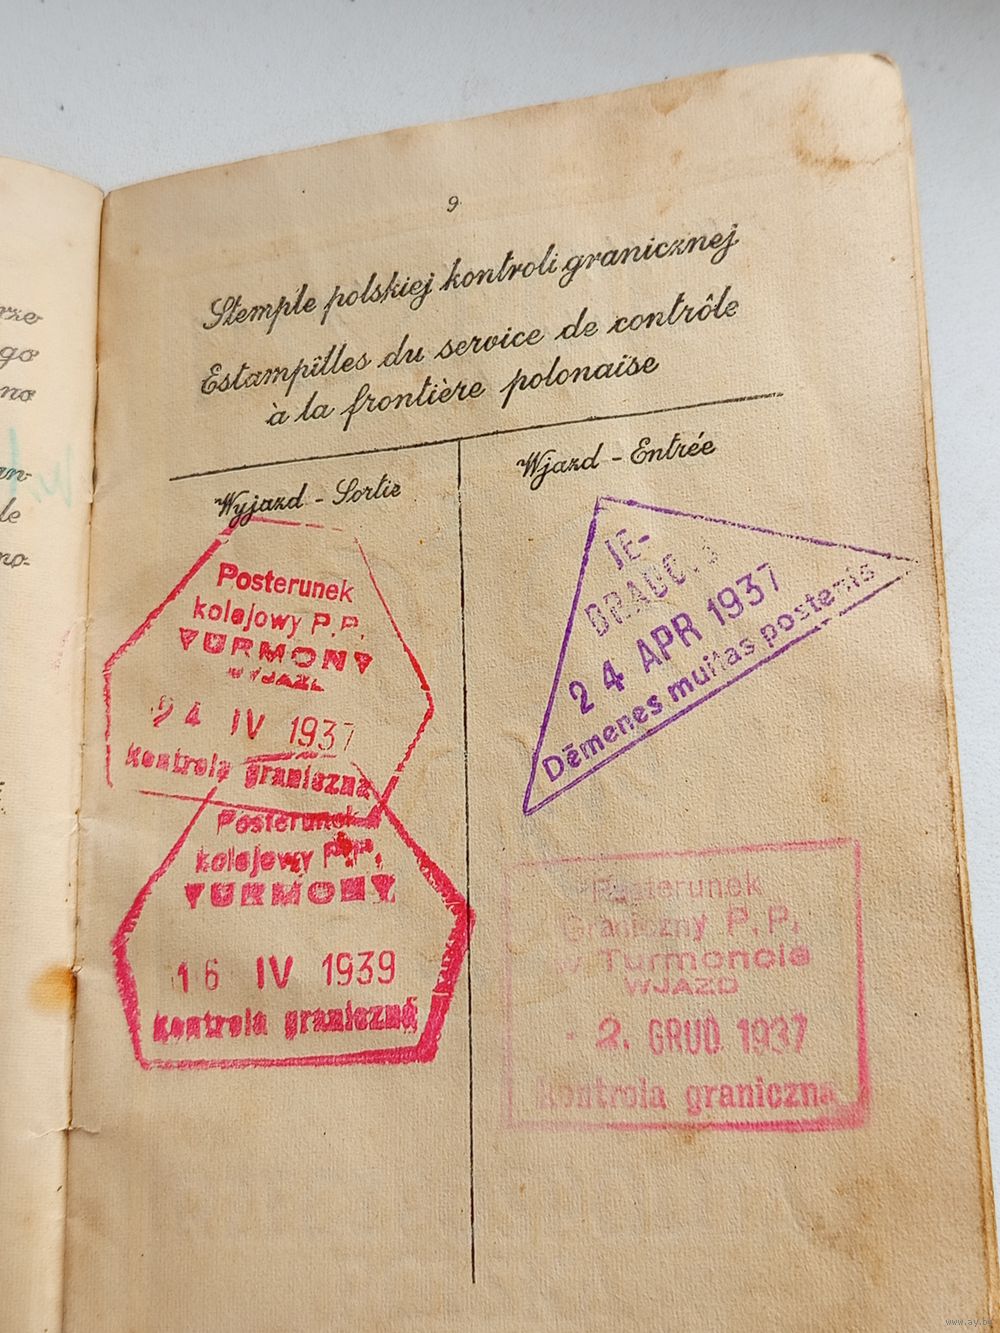 go
no
an-
le
no-
9
Stemple polskiej kontroli granicznej
Estampilles du service de contrôle
à la frontière polonaise
Wyjazd - Sortie
Posterunek
kolejowy P.P.
TURMONT
WJAZD
24 IV 1937
kontrola graniczna
Posterunek
kolejowy P.P.
TURMONT
16 IV 1939
kontrola graniczna
Wjazd - Entrée
IE-
24 APR 1937
Dēmenes muitas postenis
Posterunek
Graniczny P.P.
w Turmoncie
WJAZD
- 2. GRUD. 1937
kontrola graniczna
www.ay.by